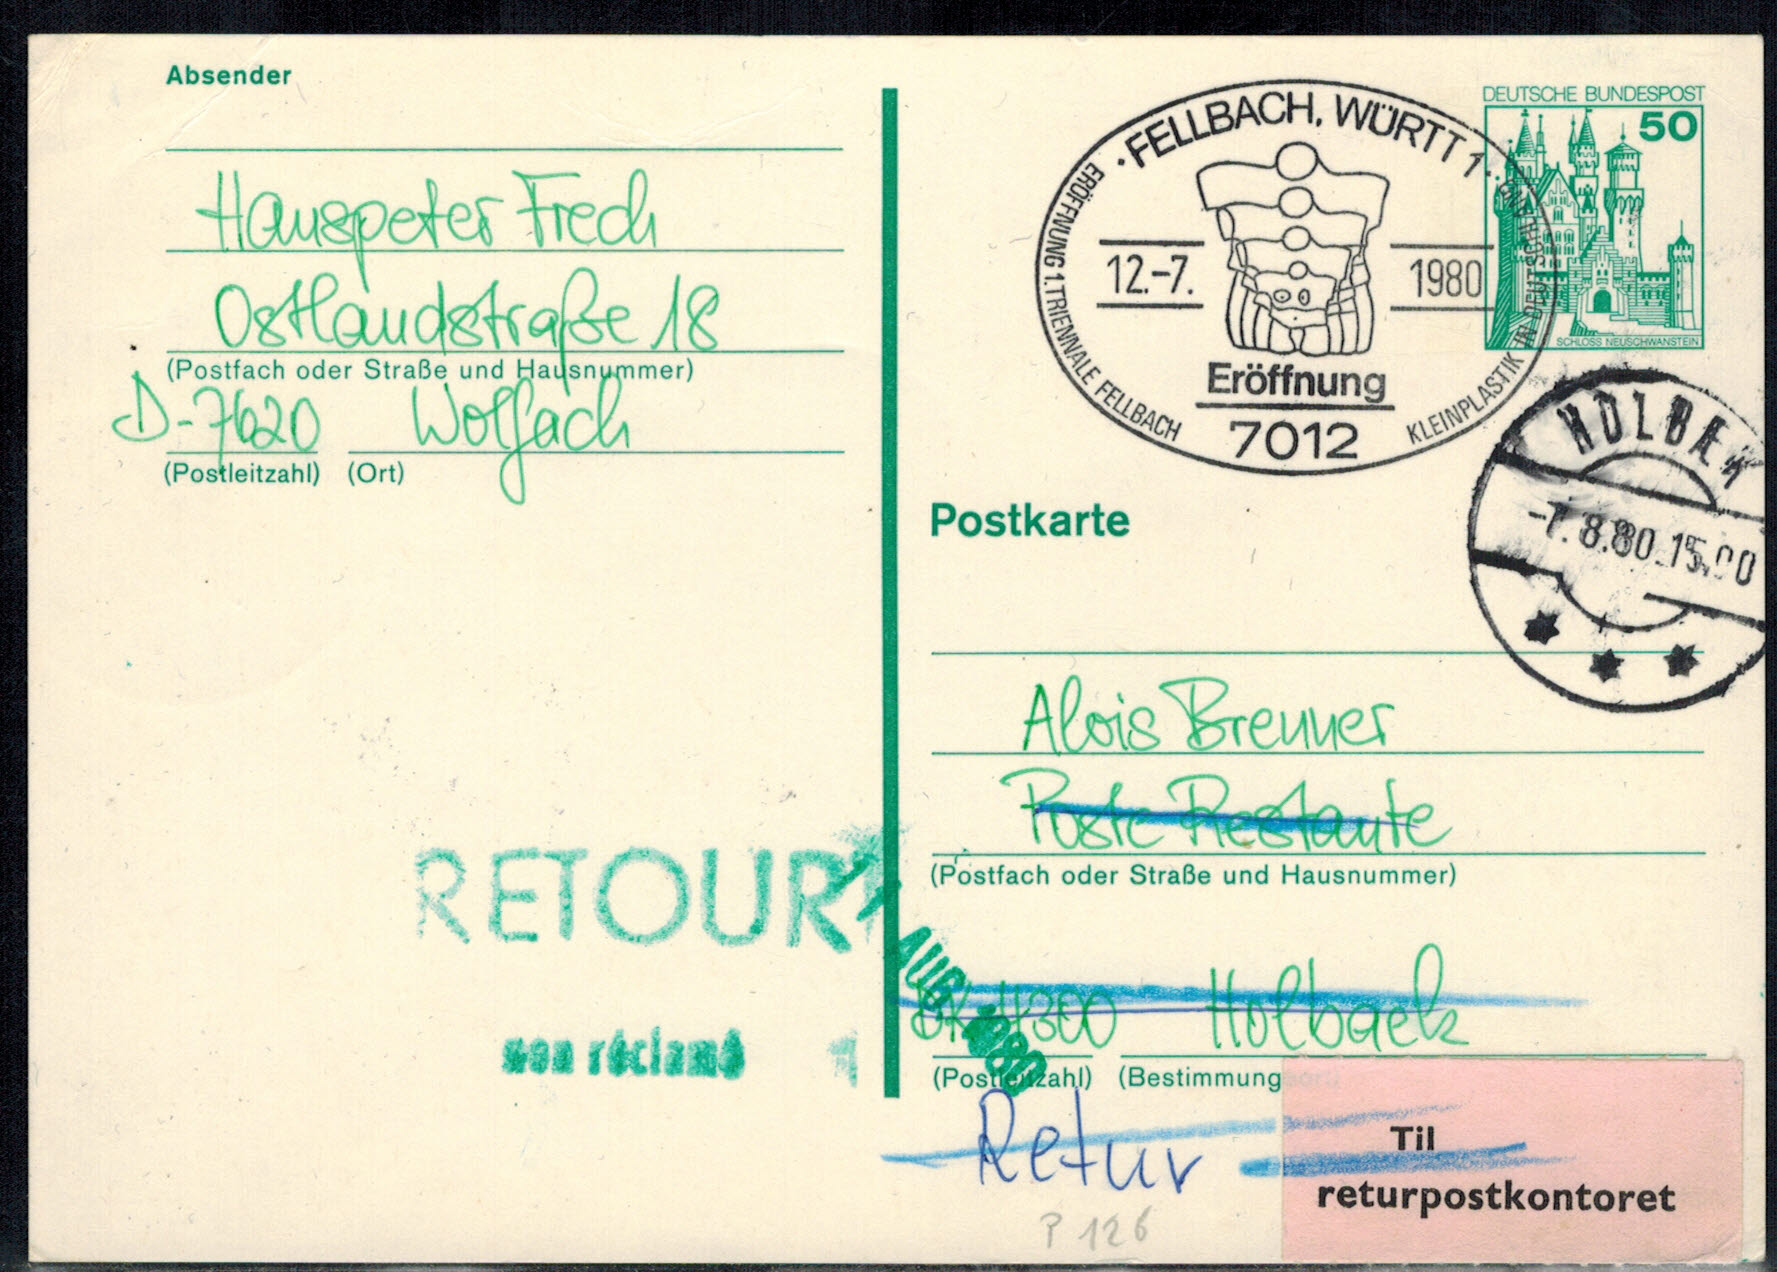 Absender
Hanspeter Frech
Ostlandstraße 18
(Postfach oder Straße und Hausnummer)
D-7620 Wolfach
(Postleitzahl) (Ort)
DEUTSCHE BUNDESPOST
50
SCHLOSS NEUSCHWANSTEIN
FELLBACH, WÜRTT 1
ERÖFFNUNG 1. TRIENNALE FELLBACH
KLEINPLASTIK IN DEUTSCHLAND
12.-7. 1980
Eröffnung
7012
HOLBÆK
-7.8.80.15.00
Postkarte
Alois Brenner
Poste Restante
(Postfach oder Straße und Hausnummer)
DK-4300 Holbaek
(Postleitzahl) (Bestimmungsort)
RETOUR
AUG. 1980
non réclamé
1
Retur
Til
returpostkontoret
P 126